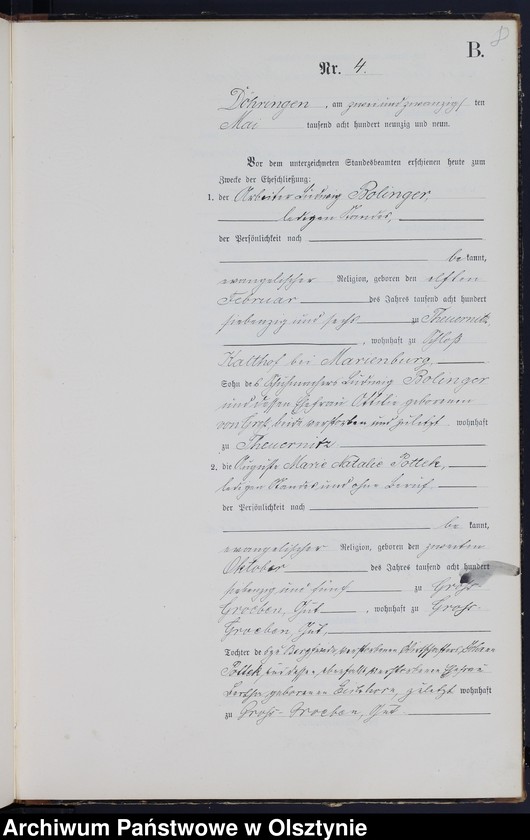 8
B.
Nr. 4.
Döhringen, am zweiundzwanzigsten
Mai tausend acht hundert neunzig und neun.
Vor dem unterzeichneten Standesbeamten erschienen heute zum
Zwecke der Eheschließung:
1. der Arbeiter Ludwig Bolinger,
ledigen Standes,
der Persönlichkeit nach
bekannt,
evangelischer Religion, geboren den elften
Februar des Jahres tausend acht hundert
siebenzig und sechs zu Theuernitz
, wohnhaft zu Schloß
Kalthof bei Marienburg,
Sohn des Ludwig Bolinger
und dessen Ehefrau Ottilie geborenen
beide verstorben und zuletzt wohnhaft
zu Theuernitz
2. die Auguste Marie Natalie Pottek,
ledigen Standes und ohne Beruf
der Persönlichkeit nach
bekannt,
evangelischer Religion, geboren den zweiten
Oktober des Jahres tausend acht hundert
siebenzig und fünf zu Groß-
Groeben, Gut, wohnhaft zu Groß-
Groeben, Gut,
Tochter des verstorbenen
Pottek, und dessen ebenfalls verstorbene Ehefrau
geborenen zuletzt wohnhaft
zu Groß-Groeben, Gut
Archiwum Państwowe w Olsztynie